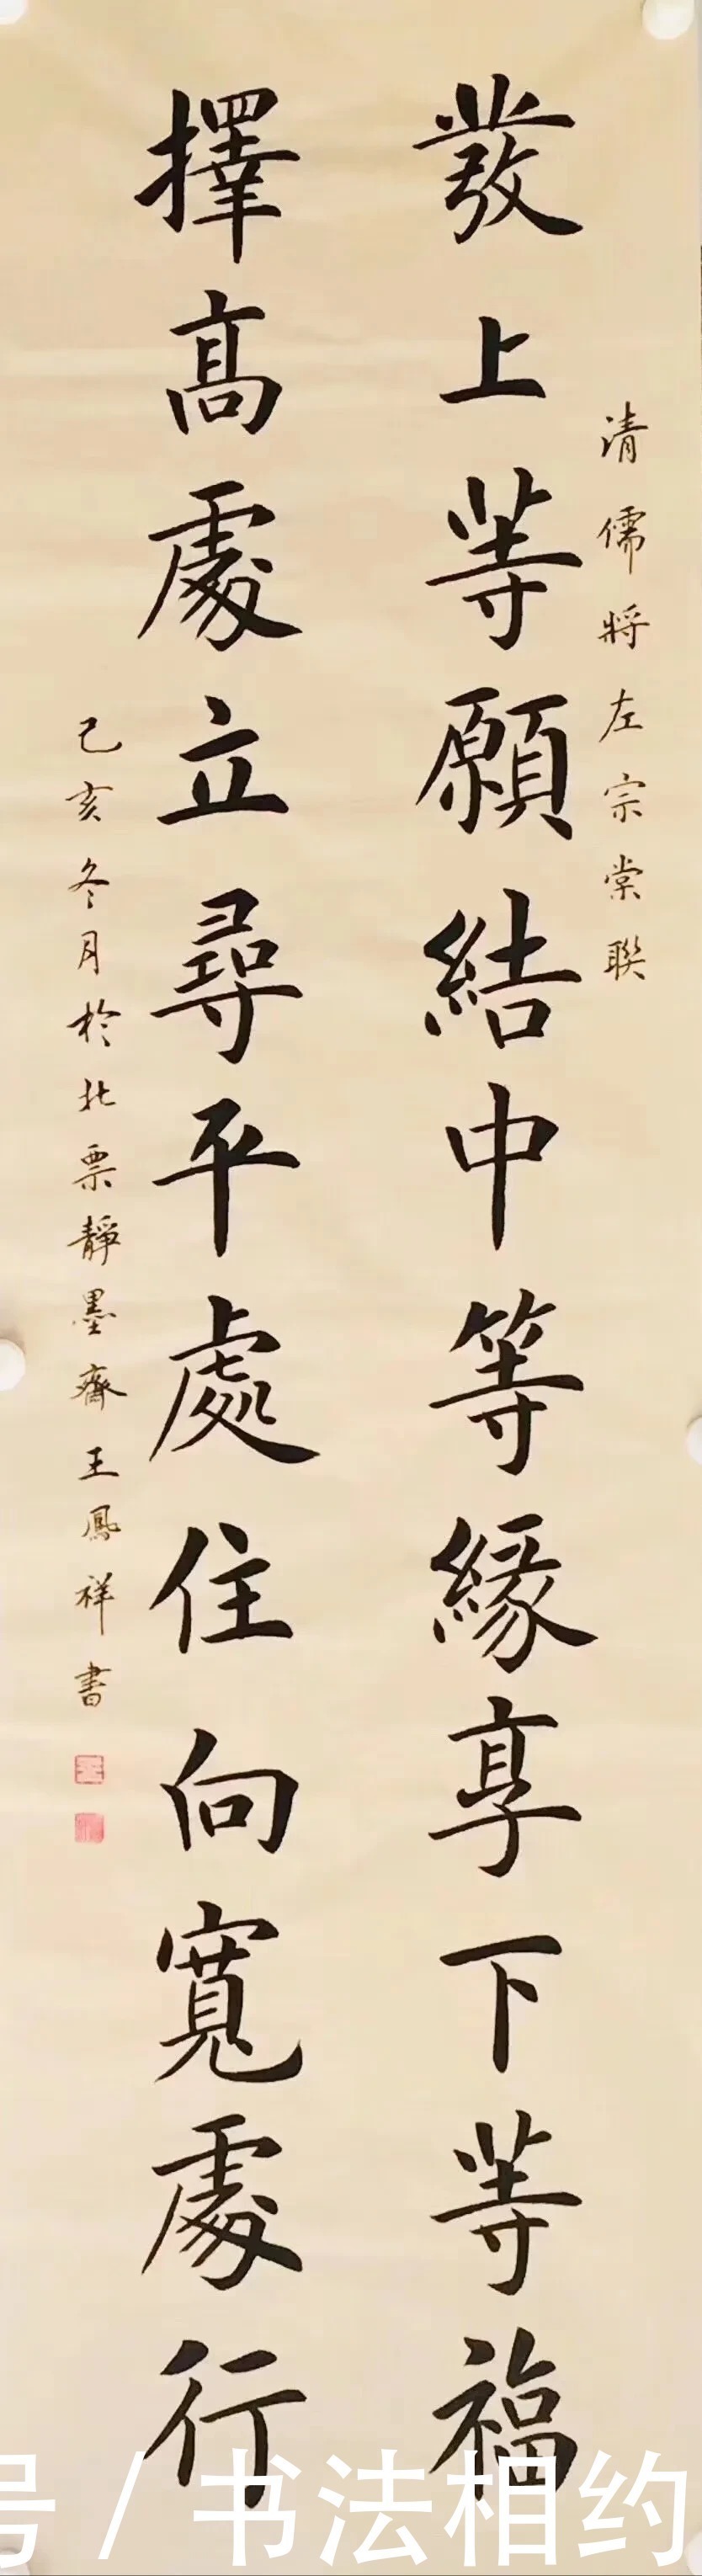 清儒將左宗棠聯
發上等願結中等緣享下等福
擇高處立尋平處住向寬處行
己亥冬月於北票靜墨齋王鳳祥書
号/书法相约